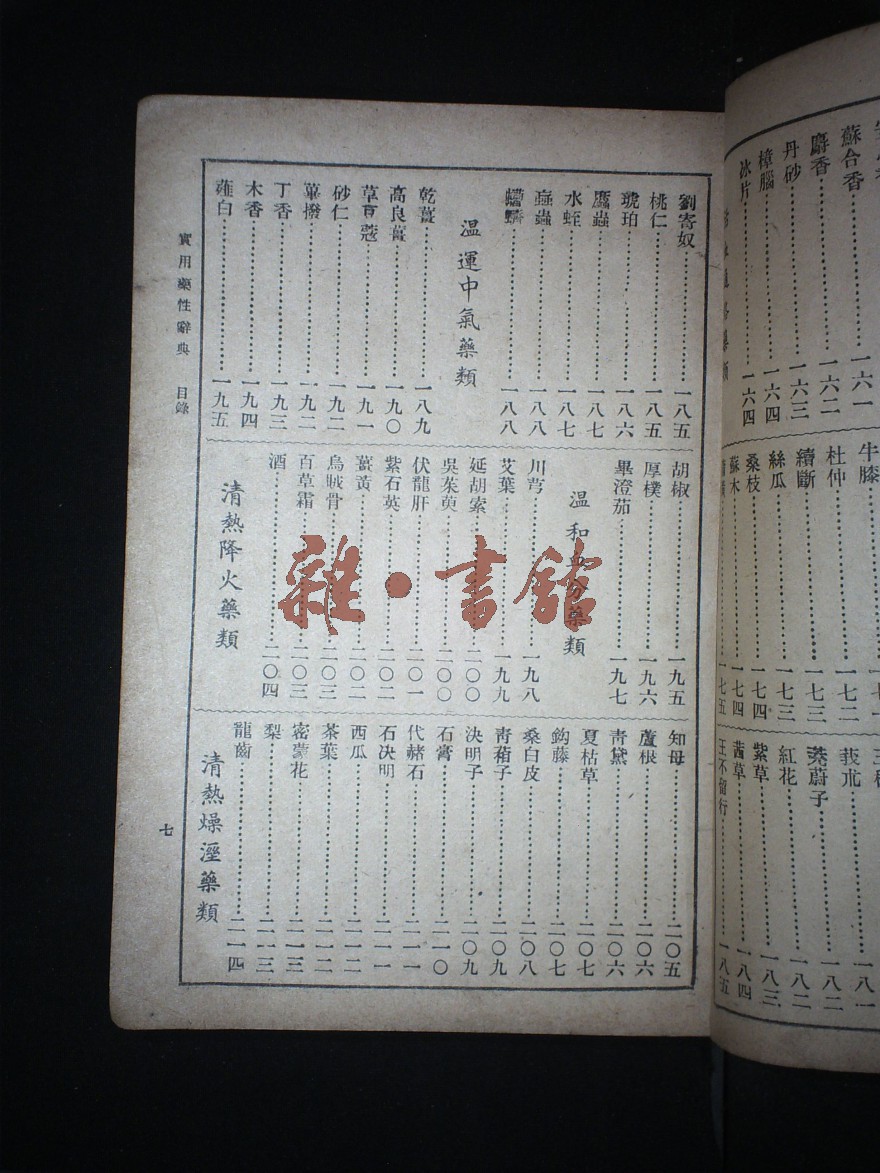 劉寄奴 一八五
桃仁 一八五
琥珀 一八六
䗪蟲 一八七
水蛭 一八七
蝱蟲 一八八
蠐螬 一八八
温運中氣藥類
乾薑 一八九
高良薑 一九〇
草荳蔻 一九一
砂仁 一九二
蓽撥 一九二
丁香 一九三
木香 一九四
薤白 一九五
胡椒 一九五
厚樸 一九六
畢澄茄 一九七
温和
藥類
川芎 一九八
艾葉 一九九
延胡索 二〇〇
吳茱萸 二〇〇
伏龍肝 二〇一
紫石英 二〇二
薑黃 二〇二
烏賊骨 二〇三
百草霜 二〇三
酒 二〇四
清熱降火藥類
知母 二〇五
蘆根 二〇六
靑黛 二〇六
夏枯草 二〇七
鈎藤 二〇七
桑白皮 二〇八
靑葙子 二〇九
決明子 二〇九
石膏 二一〇
代赭石 二一一
石決明 二一一
西瓜 二一二
茶葉 二一二
密蒙花 二一三
梨 二一三
龍齒 二一四
清熱燥溼藥類
實用藥性辭典 目錄
七
雜·書舘
蘇合香 一六一
麝香 一六二
丹砂 一六三
樟腦 一六四
冰片 一六四
牛膝
杜仲 一七二
續斷 一七三
絲瓜 一七三
桑枝 一七四
蘇木 一七四
一七五
莪朮 一八二
茺蔚子 一八二
紅花 一八二
紫草 一八三
茜草 一八四
王不留行 一八五